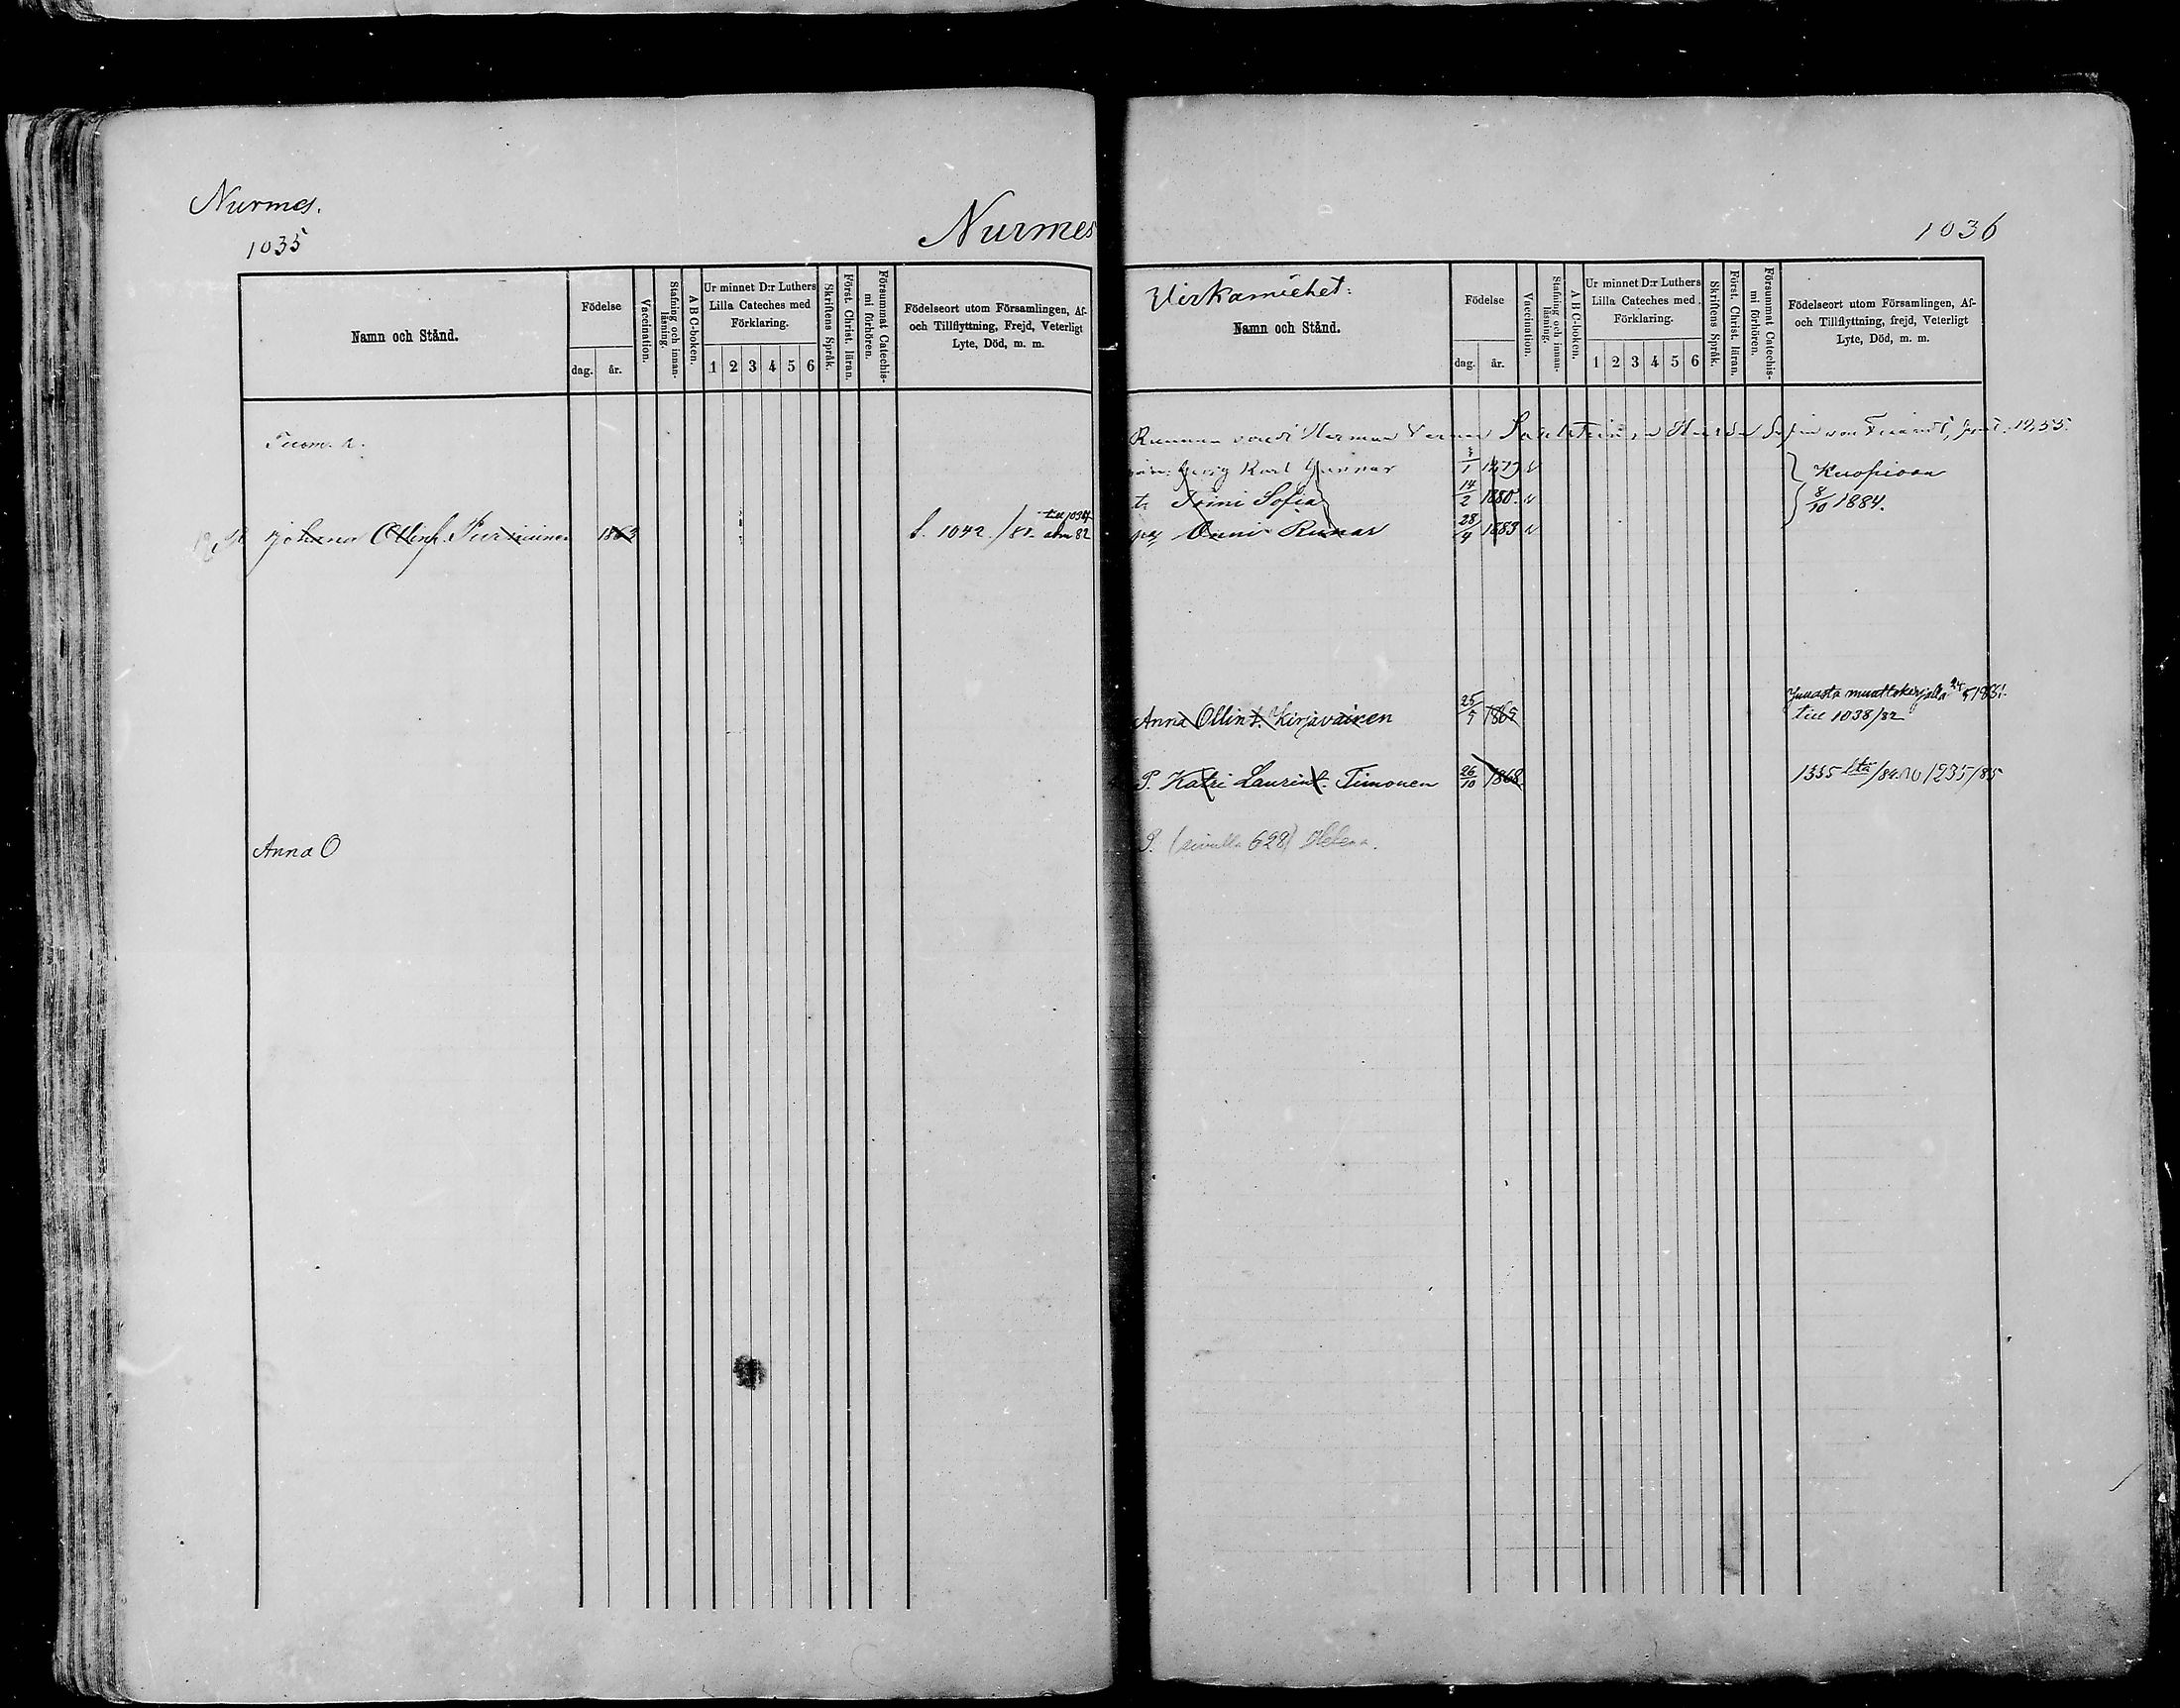 Nurmes.
1035
Nurmes
Namn och Stånd.
Födelse
dag. år.
Vaccination.
Stafning och innan-
läsning.
A B C-boken.
Ur minnet D:r Luthers
Lilla Cateches med
Förklaring.
1 2 3 4 5 6
Skriftens Språk.
Först. Christ. läran.
Försummat Catechis-
mi förhören.
Födelseort utom Församlingen, Af-
och Tillflyttning, Frejd, Veterligt
Lyte, Död, m. m.
Johana Ollin 1863 S. 1042 /81 till 1034 82
Anna O
1036
Virkamiehet:
Namn och Stånd.
Födelse
dag. år.
Vaccination.
Stafning och innan-
läsning.
A B C-boken.
Ur minnet D:r Luthers
Lilla Cateches med
Förklaring.
1 2 3 4 5 6
Skriftens Språk.
Först. Christ. läran.
Försummat Catechis-
mi förhören.
Födelseort utom Församlingen, Af-
och Tillflyttning, frejd, Veterligt
Lyte, Död, m. m.
Herman
Karl Gunnar 1879 v Kuopioon
t: Toini Sofia 14/2 1880 v 8/10 1884.
Onni Runar 28/4 1883 v
Juuasta muuttokirjalla
Anna Ollin t. Kirjavainen 25/5 1865 till 1038/82
P. Katri Laurin t. Timonen 26/10 1868 1335 /84 1235/85
P. (sivulla 628) Helena.